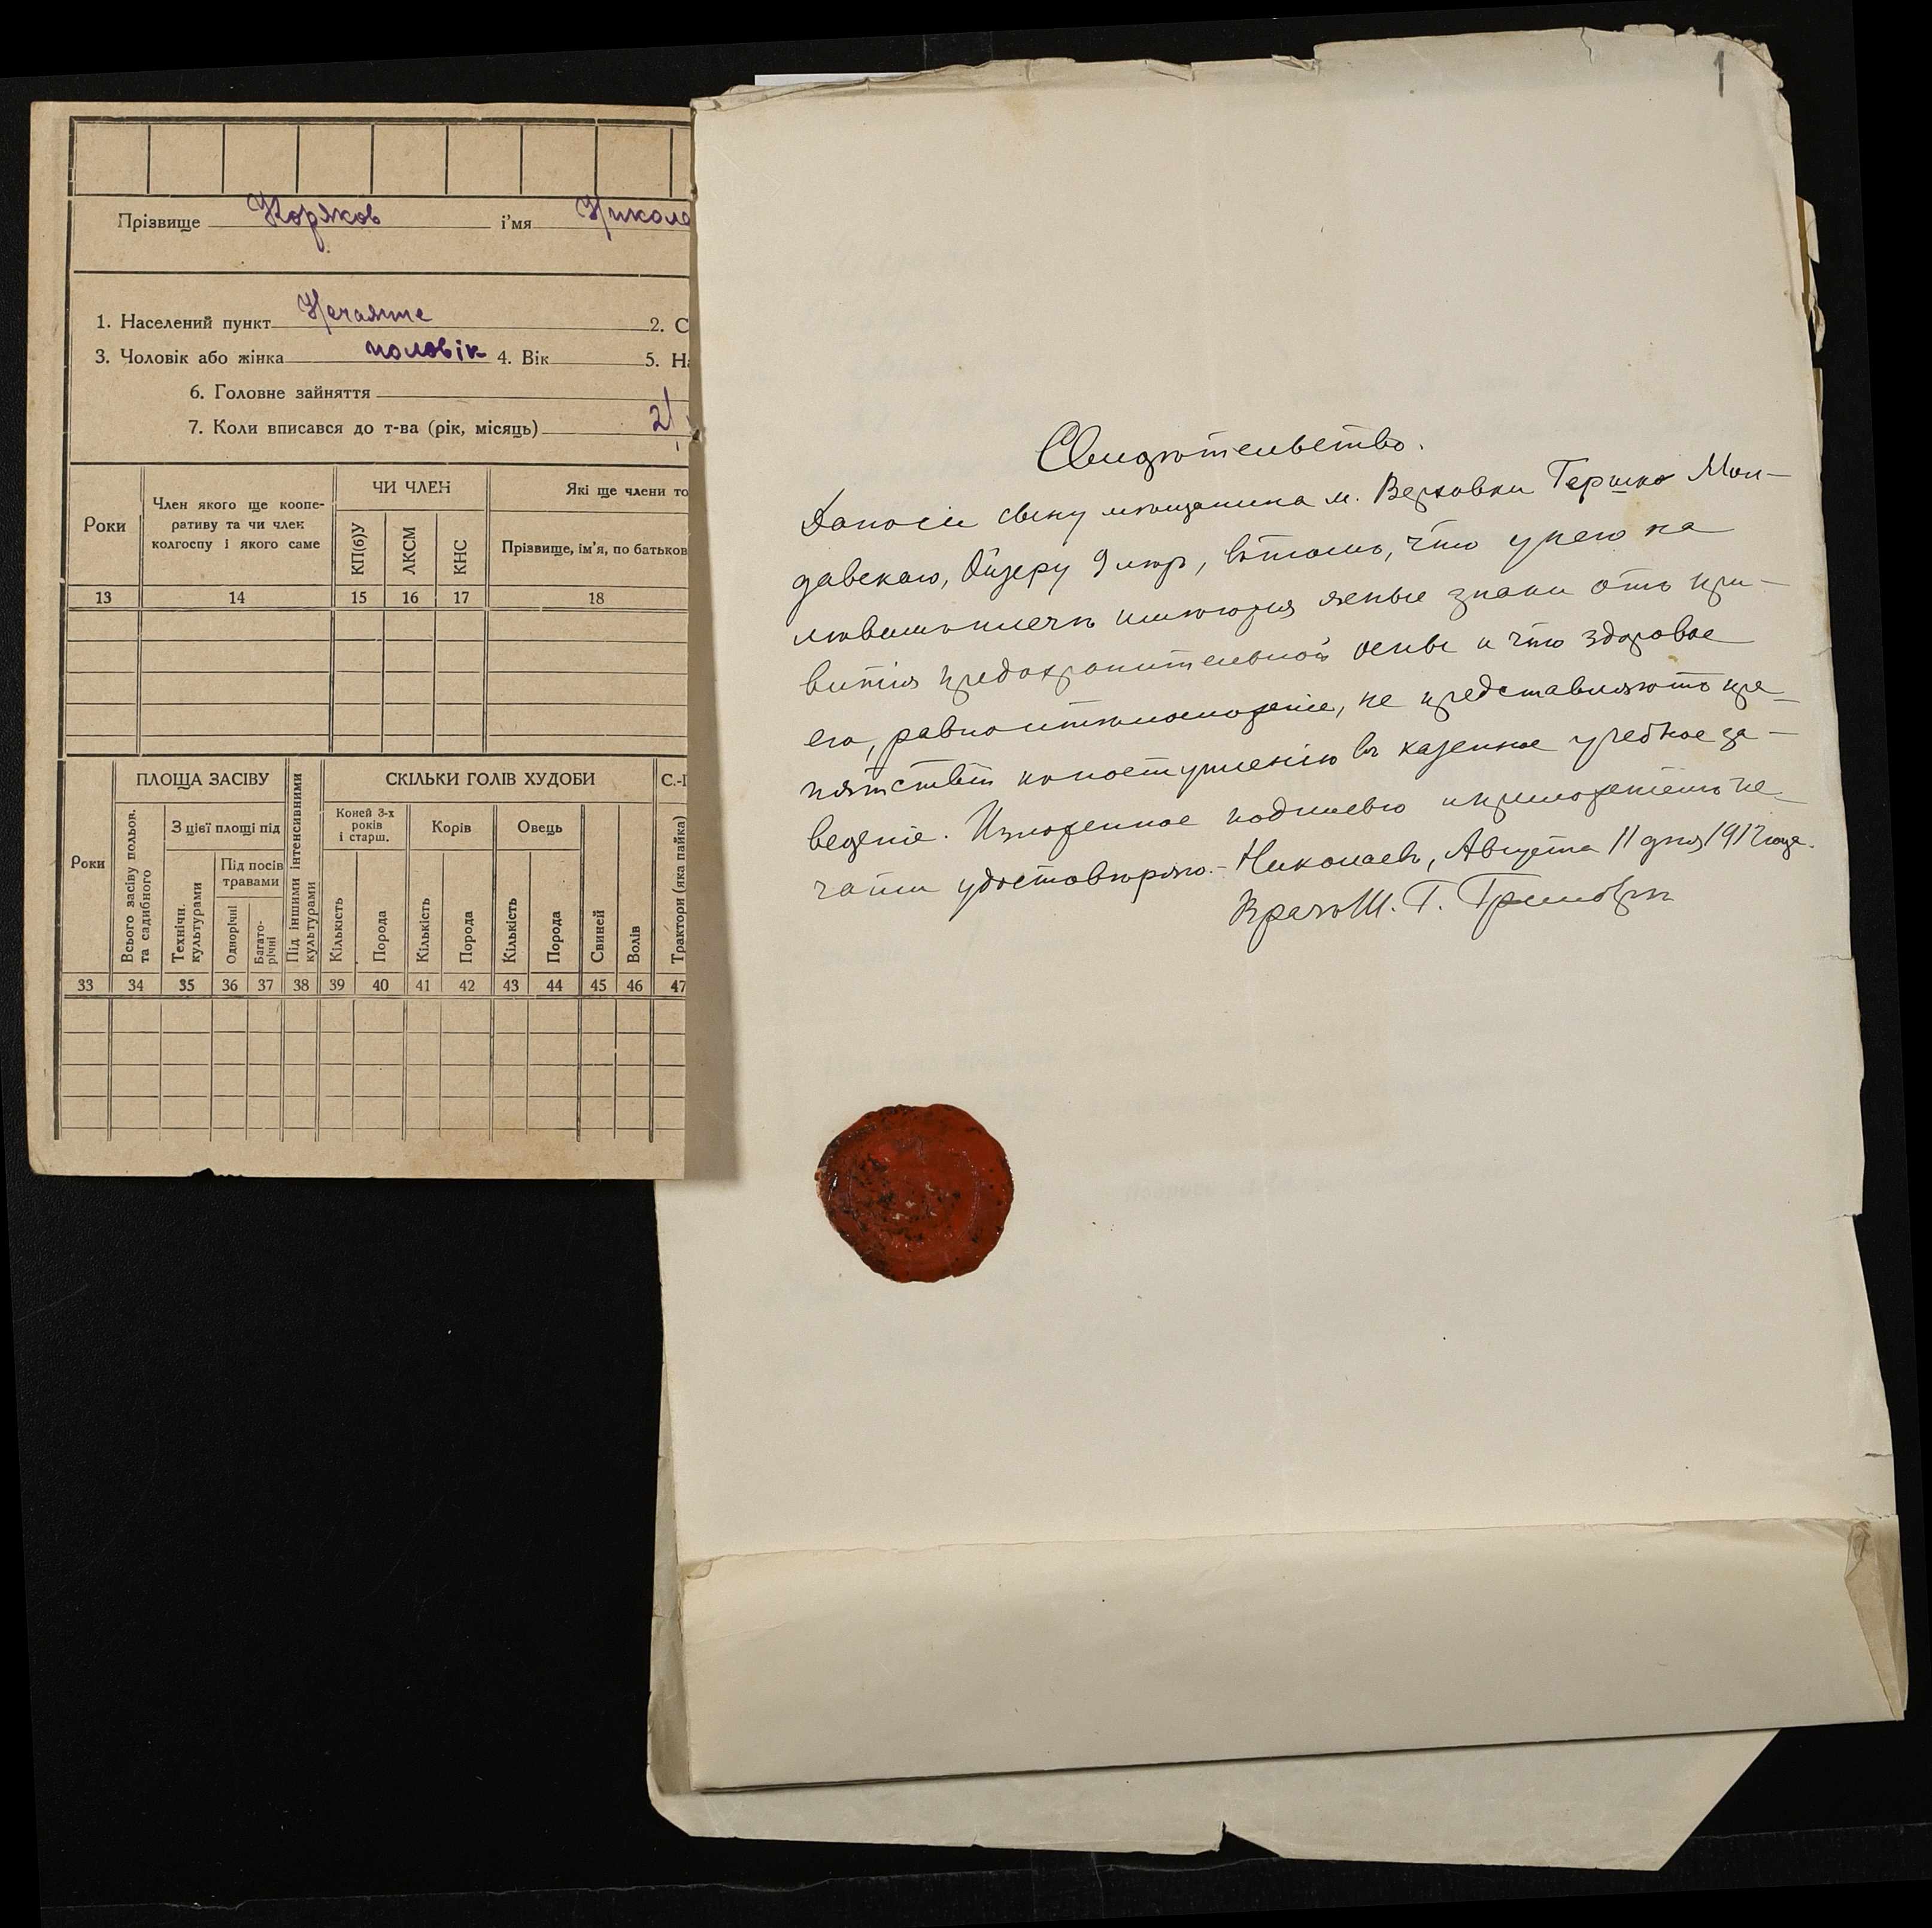 Прізвище Коряков і'мя Никола
1. Населений пункт Нечаяне 2. С
3. Чоловік або жінка чоловік 4. Вік 5. На
6. Головне зайняття
7. Коли вписався до т-ва (рік, місяць) 21
Роки
Член якого ще коопе-
ративу та чи член
колгоспу і якого саме
ЧИ ЧЛЕН
КП(б)У
ЛКСМ
КНС
Які ще члени то
Прізвище, ім'я, по батьков
13 14 15 16 17 18
Роки
ПЛОЩА ЗАСІВУ
Всього засіву польов.
та садибного
З цієї площі під
Технічн.
культурами
Під посів
травами
Однорічні
Багато-
річні
Під іншими інтенсивними
культурами
СКІЛЬКИ ГОЛІВ ХУДОБИ
Коней 3-х
років
і старш.
Кількість
Порода
Корів
Кількість
Порода
Овець
Кількість
Порода
Свиней
Волів
С.-Г
Трактори (яка пайка)
33 34 35 36 37 38 39 40 41 42 43 44 45 46 47
1
Свидѣтельство.
Дано сіе сыну мѣщанина м. Верховки Гершко Мол-
давскаго, Ойзеру 9 лѣтъ, въ томъ, что у него на
лѣвомъ плечѣ имѣются явные знаки отъ при-
витія предохранительной оспы и что здоровье
его, равно и тѣлосложеніе, не представляютъ пре-
пятствій къ поступленію въ казенное учебное за-
веденіе. Изложенное подписью и приложеніемъ пе-
чати удостовѣряю. - Николаевъ, Августа 11 дня 1912 года.
Врачъ Ш. Г.